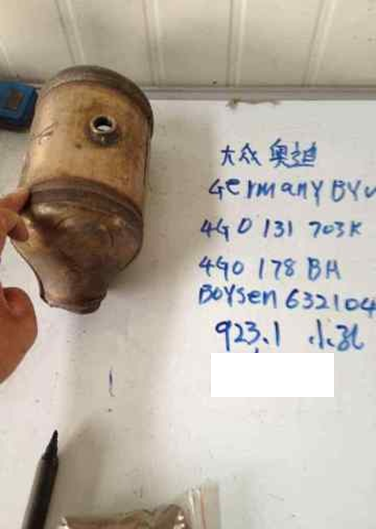 大众 奥迪
Germany BYU
4G0 131 703K
4G0 178 BH
BOYSen 632104
923.1 小孔